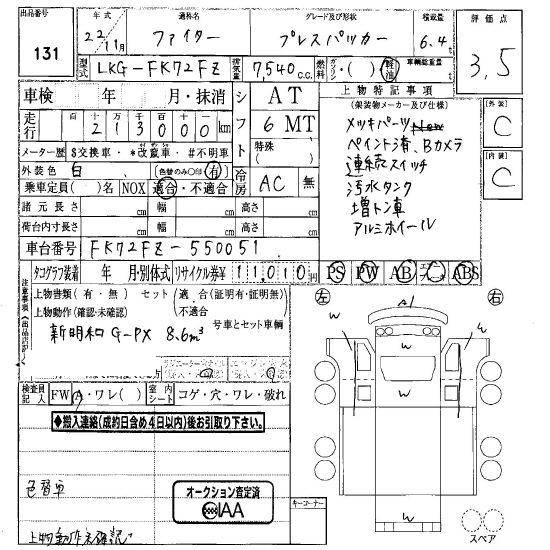 出品番号 年式 通称名 グレード及び形状 積載量 評価点
131 22年11月 ファイター プレスパッカー 6.4t 3.5
型式 LKG-FK72FZ 排気量 7,540c.c. 燃料 ガソリン・( )軽油 車輌総重量 t
車検 年 月・抹消 シフト AT 上物特記事項
(架装物メーカー及び仕様)
走行 百 十 万 千 百 十
213000km 6MT 外装 C
メーター歴 $交換車・*改竄車・#不明車 特殊( )
メッキパーツNew
ペイント済、Bカメラ
連続スイッチ
汚水タンク
増トン車
アルミホイール
外装色 白 (色替のみ○印)有 冷房 AC 無 内装 C
乗車定員( )名 NOX 適合・不適合
諸元長さ cm 幅 cm 高さ cm
荷台内寸長さ cm 幅 cm 高さ cm
車台番号 FK72FZ-550051
タコグラフ装着 年 月・別体式 リサイクル券¥ 11,010円 PS PW AB ABS
注意事項(出品店記入)
上物書類(有・無) セット(適合(証明有・証明無)
上物動作(確認・未確認) 不適合
号車とセット車輌
新明和 G-PX 8.6m³
左 右
A1
W
W
W
W
W
検査員記入 FW A・ワレ( ) 室内シート コゲ・穴・ワレ・破れ
◆搬入連絡(成約日含め4日以内)後お引取り下さい。
色替車
オークション査定済
IAA
キーコーナー
上物動作未確認
スペア